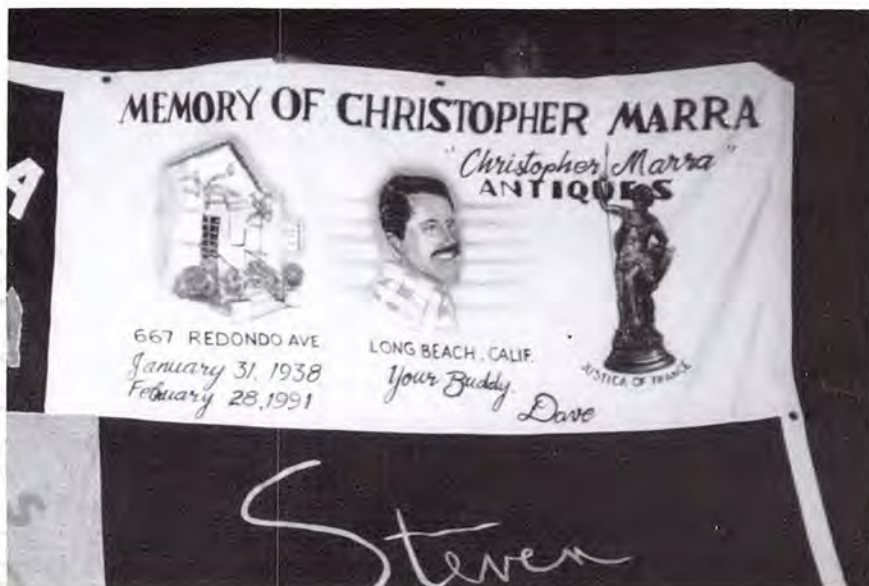 MEMORY OF CHRISTOPHER MARRA
"Christopher Marra"
ANTIQUES
667 REDONDO AVE.
January 31, 1938
Febuary 28, 1991
LONG BEACH, CALIF.
Your Buddy.
Dave
JUSTICA OF FRANCE
A
S
Steven